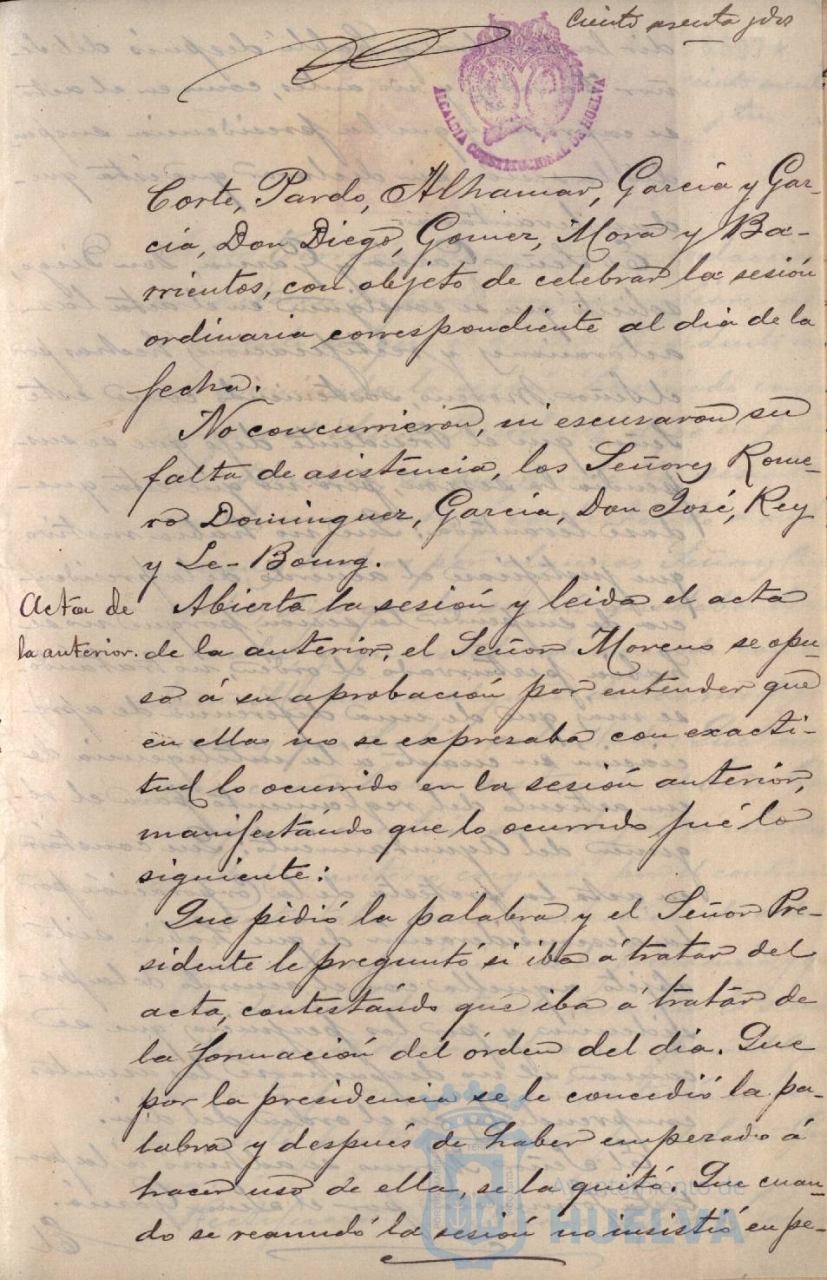 Ciento sesenta y dos
ALCALDIA CONSTITUCIONAL DE HUELVA
Corte, Pardo, Alhamar, García y Gar-
cía, Don Diego, Gomez, Mora y Ba-
rrientos, con objeto de celebrar la sesión
ordinaria correspondiente al dia de la
fecha.
No concurrieron, ni escusaron su
falta de asistencia, los Señores Rome-
ro Dominguez, García, Don José, Rey
y Le-Bourg.
Acta de
la anterior.
Abierta la sesión y leida el acta
de la anterior, el Señor Moreno se opu-
so á su aprobación por entender que
en ella no se expresaba con exacti-
tud lo ocurrido en la sesión anterior,
manifestándo que lo ocurrido fué lo
siguiente:
Que pidió la palabra y el Señor Pre-
sidente le preguntó si iba á tratar del
acta, contestándo que iba á tratar de
la formación del órden del día. Que
por la presidencia se le concedió la pa-
labra y después de haber empezado á
hacer uso de ella, se la quitó. Que cuan-
do se reanudó la sesión no insistió en pe-
Ayuntamiento de
HUELVA